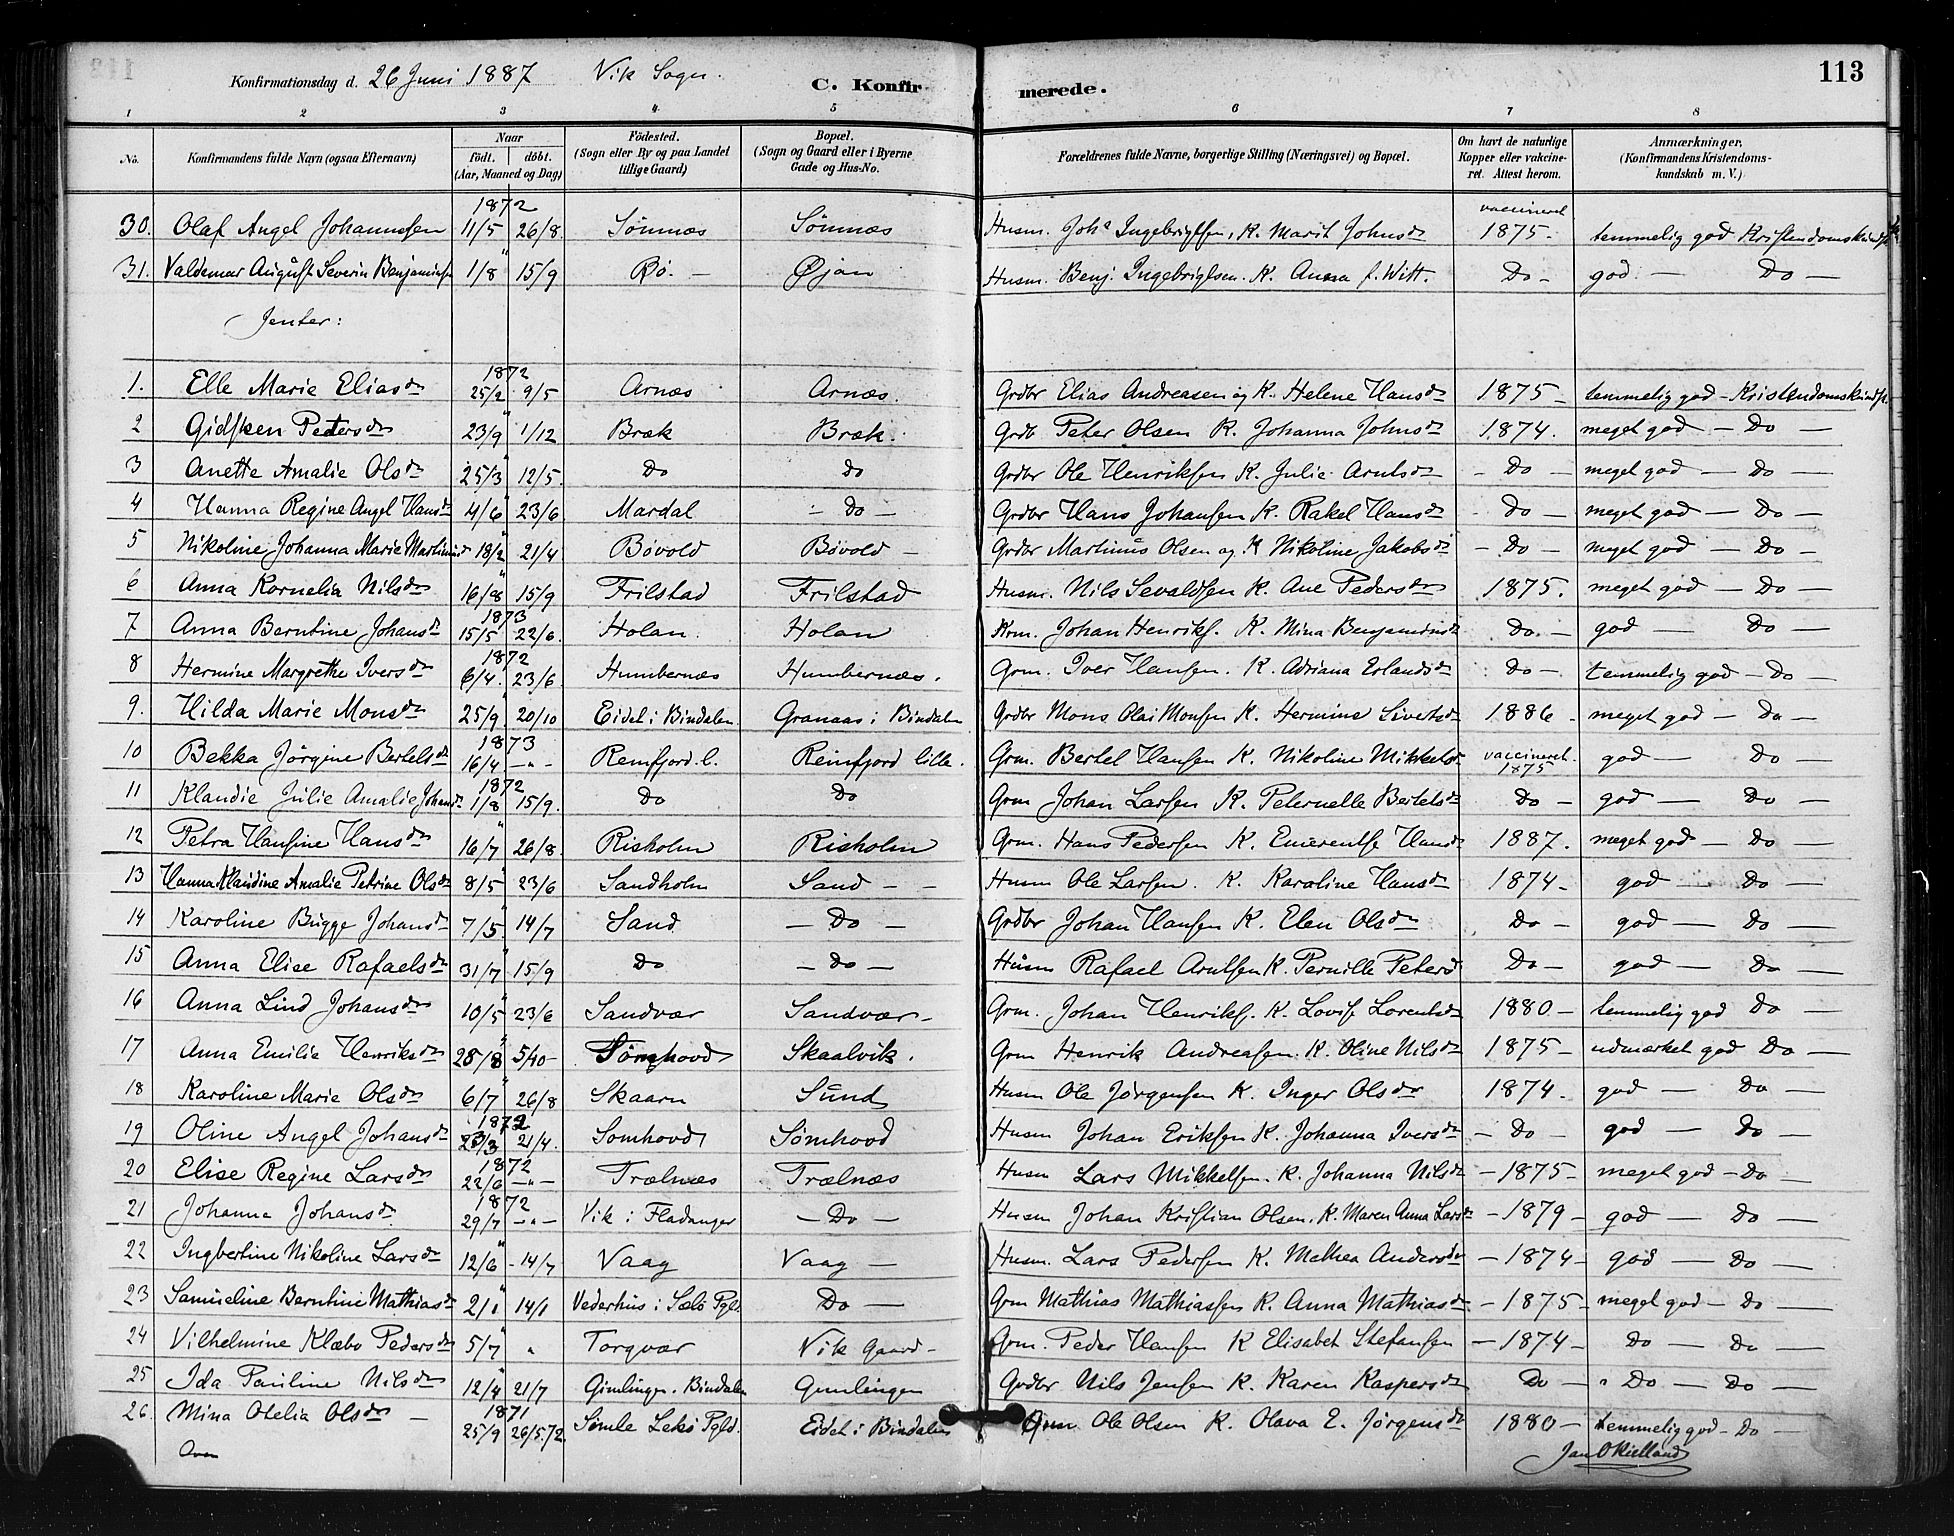 113
Konfirmationsdag d. 26 Juni 1887 Vik Sogn.
C. Konfirmerede.
1 2 3 4 5 6 7 8
No. Konfirmandens fulde Navn (ogsaa Efternavn) Naar födt. döbt. (Aar, Maaned og Dag) Födested. (Sogn eller By og paa Landet tillige Gaard) Bopæl. (Sogn og Gaard eller i Byerne Gade og Hus-No. Forældrenes fulde Navne, borgerlige Stilling (Næringsvei) og Bopæl. Om havt de naturlige Kopper eller vakcineret. Attest herom. Anmærkninger. (Konfirmandens Kristendomskundskab m. V.)
1872 vaccineret
30. Olaf Angel Johannssen 11/5 26/8. Sömnæs Sömnæs Husm. Johs Ingebrigtsen, K. Marit Johnsdr 1875. temmelig god Kristendomskundsk
31. Valdemar August Severin Benjaminsen 1/8 15/9 Rö. — Øjan Husm. Benj. Ingebrigtsen. K. Anna f. Witt. Do — god — Do —
Jenter:
1872
1. Elle Marie Eliasdr 25/2 9/5 Arnæs Arnæs. Grdbr Elias Andreasen og K. Helene Hansdr 1875 — temmelig god — Kristendomskundsk.
2 Gidsken Petersdr 23/9 1/12 Bræk Bræk. Grdb Peter Olsen K. Johanna Johnsdr 1874. meget god — Do —
3 Anette Amalie Olsdr 25/3 12/5. Do Do Grdbr Ole Henriksen K. Julie Arntsdr — Do — meget god — Do —
4 Hanna Regine Angel Hansdr 4/6 23/6 Mardal — Do — Grdbr Hans Johansen K. Rakel Hansdr — Do — meget god — Do —
5 Nikoline Johanna Marie Martinusd 18/2 21/4 Bövold Bövold — Grdbr Martinus Olsen og K Nikoline Jakobsdr — Do — meget god — Do —
6 Anna Kornelia Nilsdr 16/8 15/9 Frilstad Frilstad Husm. Nils Sevaldsen K. Ane Pedersdr 1875. meget god — Do —
1873
7 Anna Berntine Johansdr 15/5 22/6. Holan. Holan Krm. Johan Henriks. K. Mina Benjaminsdr Do. — god — Do —
1872
8 Hermine Margrethe Iversdr 6/4. 23/6 Humbernæs Humbernæs. Grm. Iver Hansen. K. Adriana Erlandsdr Do — temmelig god — Do —
9. Hilda Marie Monsdr 25/9 20/10 Eidet i Bindalen Granaas i Bindalen Grdbr Mons Olai Monsen K. Hermine Sivertsdr 1886 — meget god — Do —
1873
10 Bekka Jörgine Bertelsdr 16/4 — " — Reinfjord l. Reinfjord lille. Grm. Bertel Hansen K. Nikoline Mikkelsdr vaccineret 1875 god — Do —
1872
11 Klaudie Julie Amalie Johansdr 1/8 15/9. Do Do Grm Johan Larsen K. Peternelle Bertelsdr Do — god — Do —
12 Petra Hansine Hansdr 16/7 26/8. Risholm Risholm Grm. Hans Pedersen K. Emerentse Hansdr 1887. meget god — Do —
13 Hanna Klaudine Amalie Petrine Olsdr 8/5 23/6 Sandholm Sand — — Husm Ole Larsen. K. Karoline Hansdr 1874 — god — Do —
14 Karoline Bugge Johansdr 7/5. 14/7 Sand — Do — Grdbr Johan Hansen K. Elen Olsdr Do — god — Do —
15 Anna Elise Rafaelsdr 31/7 15/9 Do — Do — Husm Rafael Arntsen K. Pernille Petersd Do — god — Do —
16 Anna Lind Johansdr 10/5 23/6 Sandvær Sandvær — Grm. Johan Henriks. K. Lovise Lorentsdr 1880 — temmelig god Do —
17 Anna Emilie Henriksdr 28/8 5/10 — Sömhovd Skaalvik. Grm Henrik Andreasen. K. Oline Nilsdr 1875 — udmærket god Do —
18 Karoline Marie Olsdr 6/7 26/8 Skaarn Sund Husm Ole Jörgensen K. Inger Olsdr 1874. god — Do —
1872
19 Oline Angel Johansdr 23/3 21/4. Somhovd Sömhovd Husm Johan Eriksen K. Johanna Iversdr — Do — god — Do —
1872
20 Elise Regine Larsdr 22/6 — " — Trælnæs Trælnæs Husm Lars Mikkelsen. K. Johanna Nilsdr — 1875 — meget god — Do —
1872
21 Johanna Johansdr 29/7 — " — Vik i Fladanger — Do — Husm Johan Kristian Olsen. K. Maren Anna Larsdr — 1879 — god — Do —
22 Ingbertine Nikoline Larsdr 12/6 — 14/7 Vaag Vaag — Husm. Lars Pedersen K. Mathea Andersdr — 1874 — god — Do —
23 Samueline Berntine Mathiasdr 2/1 14/1 Vederhus i Sælö Pgld. Do — Grm Mathias Mathiassen K. Anna Mathiasdr — 1875 — meget god — Do —
24 Vilhelmine Klæbo Pedersdr 5/7 " Torgvær Vik Gaard — Grm. Peder Hansen K Elisabet Stefansen — 1874 — Do — Do —
25 Ida Pauline Nilsdr 12/4 21/7 Gimlingen. Bindalen Gimlingen Grdbr Nils Jensen K. Karen Kaspersdr Do — " Do — Do —
1871
26. Mina Otelia Olsdr — 25/9 26/5.72. Simle Lekö Pgld. Eidet i Bindalen Grm Ole Olsen K. Olava E. Jörgensdr 1880 — temmelig god — Do —
Jan O Kielland